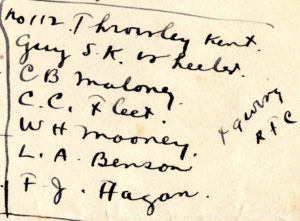 No 112. Throwley Kent.
Guy S.K. Wheeler.
C B Maloney.
C.C. Fleet.
W H Mooney.
L. A. Benson
F. J. Hagan.
RFC